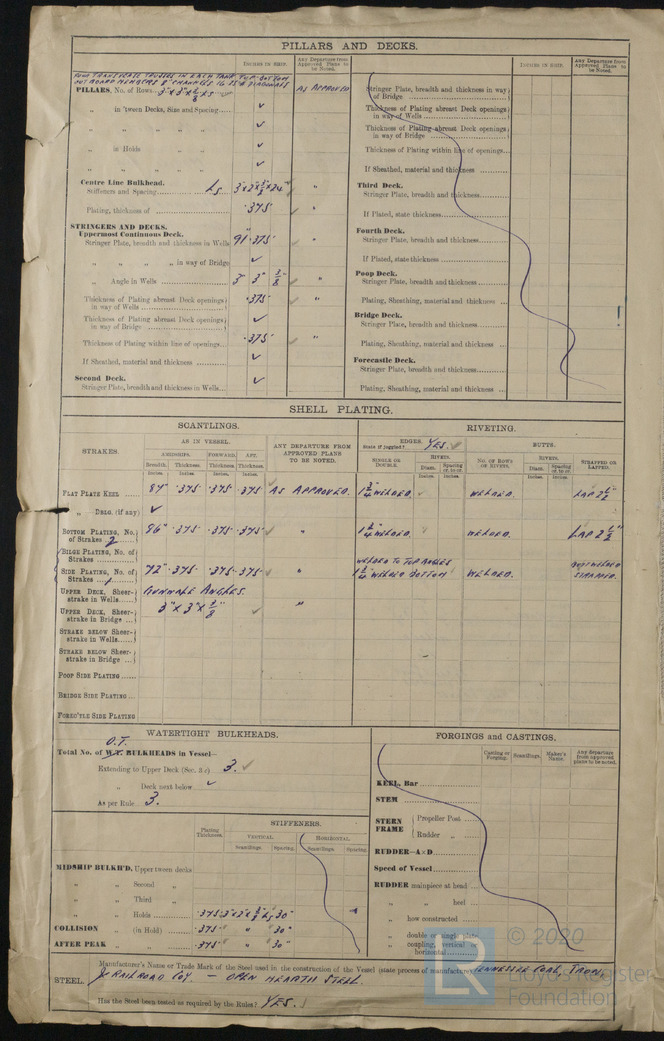 PILLARS AND DECKS.
INCHES IN SHIP.
Any Departure from Approved Plans to be Noted.
FOUR TRANSVERSE TRUSSES IN EACH TANK TOP & BOTTOM
PILLARS, No. of Rows
AS APPROVED
„ in 'tween Decks, Size and Spacing
„ „ „ „
„ in Holds
„ „
Centre Line Bulkhead.
Stiffeners and Spacing
Plating, thickness of .375 "
STRINGERS AND DECKS.
Uppermost Continuous Deck.
Stringer Plate, breadth and thickness in Wells 91" .375
„ „ „ „ in way of Bridge
„ Angle in Wells 3" 3" 3/8" "
Thickness of Plating abreast Deck openings in way of Wells .375 "
Thickness of Plating abreast Deck openings in way of Bridge
Thickness of Plating within line of openings .375 "
If Sheathed, material and thickness
Second Deck.
Stringer Plate, breadth and thickness in Wells
INCHES IN SHIP.
Any Departure from Approved Plans to be Noted.
Stringer Plate, breadth and thickness in way of Bridge
Thickness of Plating abreast Deck openings in way of Wells
Thickness of Plating abreast Deck openings in way of Bridge
Thickness of Plating within line of openings
If Sheathed, material and thickness
Third Deck.
Stringer Plate, breadth and thickness
If Plated, state thickness
Fourth Deck.
Stringer Plate, breadth and thickness
If Plated, state thickness
Poop Deck.
Stringer Plate, breadth and thickness
Plating, Sheathing, material and thickness
Bridge Deck.
Stringer Plate, breadth and thickness
Plating, Sheathing, material and thickness
Forecastle Deck.
Stringer Plate, breadth and thickness
Plating, Sheathing, material and thickness
SHELL PLATING.
SCANTLINGS.
RIVETING.
STRAKES.
AS IN VESSEL.
AMIDSHIPS. FORWARD. AFT.
Breadth. Thickness. Thickness. Thickness.
Inches. Inches. Inches. Inches.
ANY DEPARTURE FROM APPROVED PLANS TO BE NOTED.
EDGES. State if joggled? YES.
SINGLE OR DOUBLE.
RIVETS.
Diam. Spacing cr. to cr.
Inches. Inches.
BUTTS.
NO. OF ROWS OF RIVETS.
RIVETS.
Diam. Spacing cr. to cr.
Inches. Inches.
STRAPPED OR LAPPED.
FLAT PLATE KEEL 84" .375 .375 .375 AS APPROVED. 1 3/4" WELDED. WELDED. LAP 2 1/2"
„ DBLG. (if any)
BOTTOM PLATING, No. of Strakes 2 96" .375 .375 .375 " 1 3/4" WELDED. WELDED. LAP 2 1/2"
BILGE PLATING, No. of Strakes
SIDE PLATING, No. of Strakes 1 72" .375 .375 .375 " WELDED TO TOP ANGLES WELDED BOTTOM WELDED. BUTT WELDED STRAPPED.
UPPER DECK, Sheerstrake in Wells GUNWALE ANGLES.
UPPER DECK, Sheerstrake in Bridge "
STRAKE BELOW Sheerstrake in Wells
STRAKE BELOW Sheerstrake in Bridge
POOP SIDE PLATING
BRIDGE SIDE PLATING
FOREC'TLE SIDE PLATING
WATERTIGHT BULKHEADS.
O.T.
Total No. of W.T. BULKHEADS in Vessel
Extending to Upper Deck (Sec. 3.c) 3.
„ Deck next below
As per Rule 3.
Plating Thickness.
STIFFENERS.
VERTICAL HORIZONTAL
Scantlings. Spacing. Scantlings. Spacing.
MIDSHIP BULKH'D, Upper tween decks
„ „ Second „
„ „ Third „
„ „ Holds .375 30"
COLLISION „ (in Hold) .375 " 30"
AFTER PEAK „ „ .375 " 30"
FORGINGS and CASTINGS.
Casting or Forging. Scantlings. Maker's Name. Any departure from approved plans to be noted.
KEEL, Bar
STEM
STERN FRAME
Propeller Post
Rudder „
RUDDER—A×D
Speed of Vessel
RUDDER mainpiece at head
„ „ heel
„ how constructed
„ double or single plate
„ coupling, vertical or horizontal
STEEL.
Manufacturer's Name or Trade Mark of the Steel used in the construction of the Vessel (state process of manufacture) TENNESSEE COAL, IRON,
& RAILROAD COY. — OPEN HEARTH STEEL.
Has the Steel been tested as required by the Rules? YES.
© 2020
LR
Lloyd's Register
Foundation